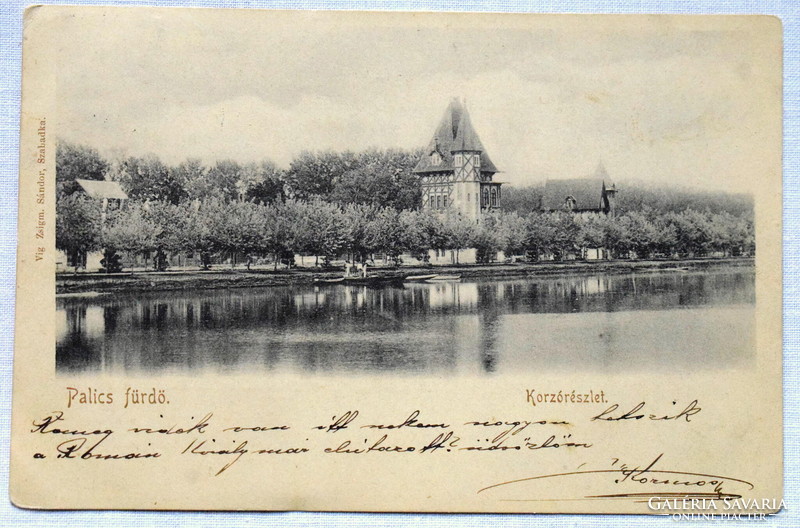 Vig Zsigm. Sándor, Szabadka.
Palics fürdö.
Korzórészlet.
vidék van itt nekem nagyon tetszik
a Román Király már elutazott? üdvözlöm
GALÉRIA SAVARIA
ONLINE PIACTÉR